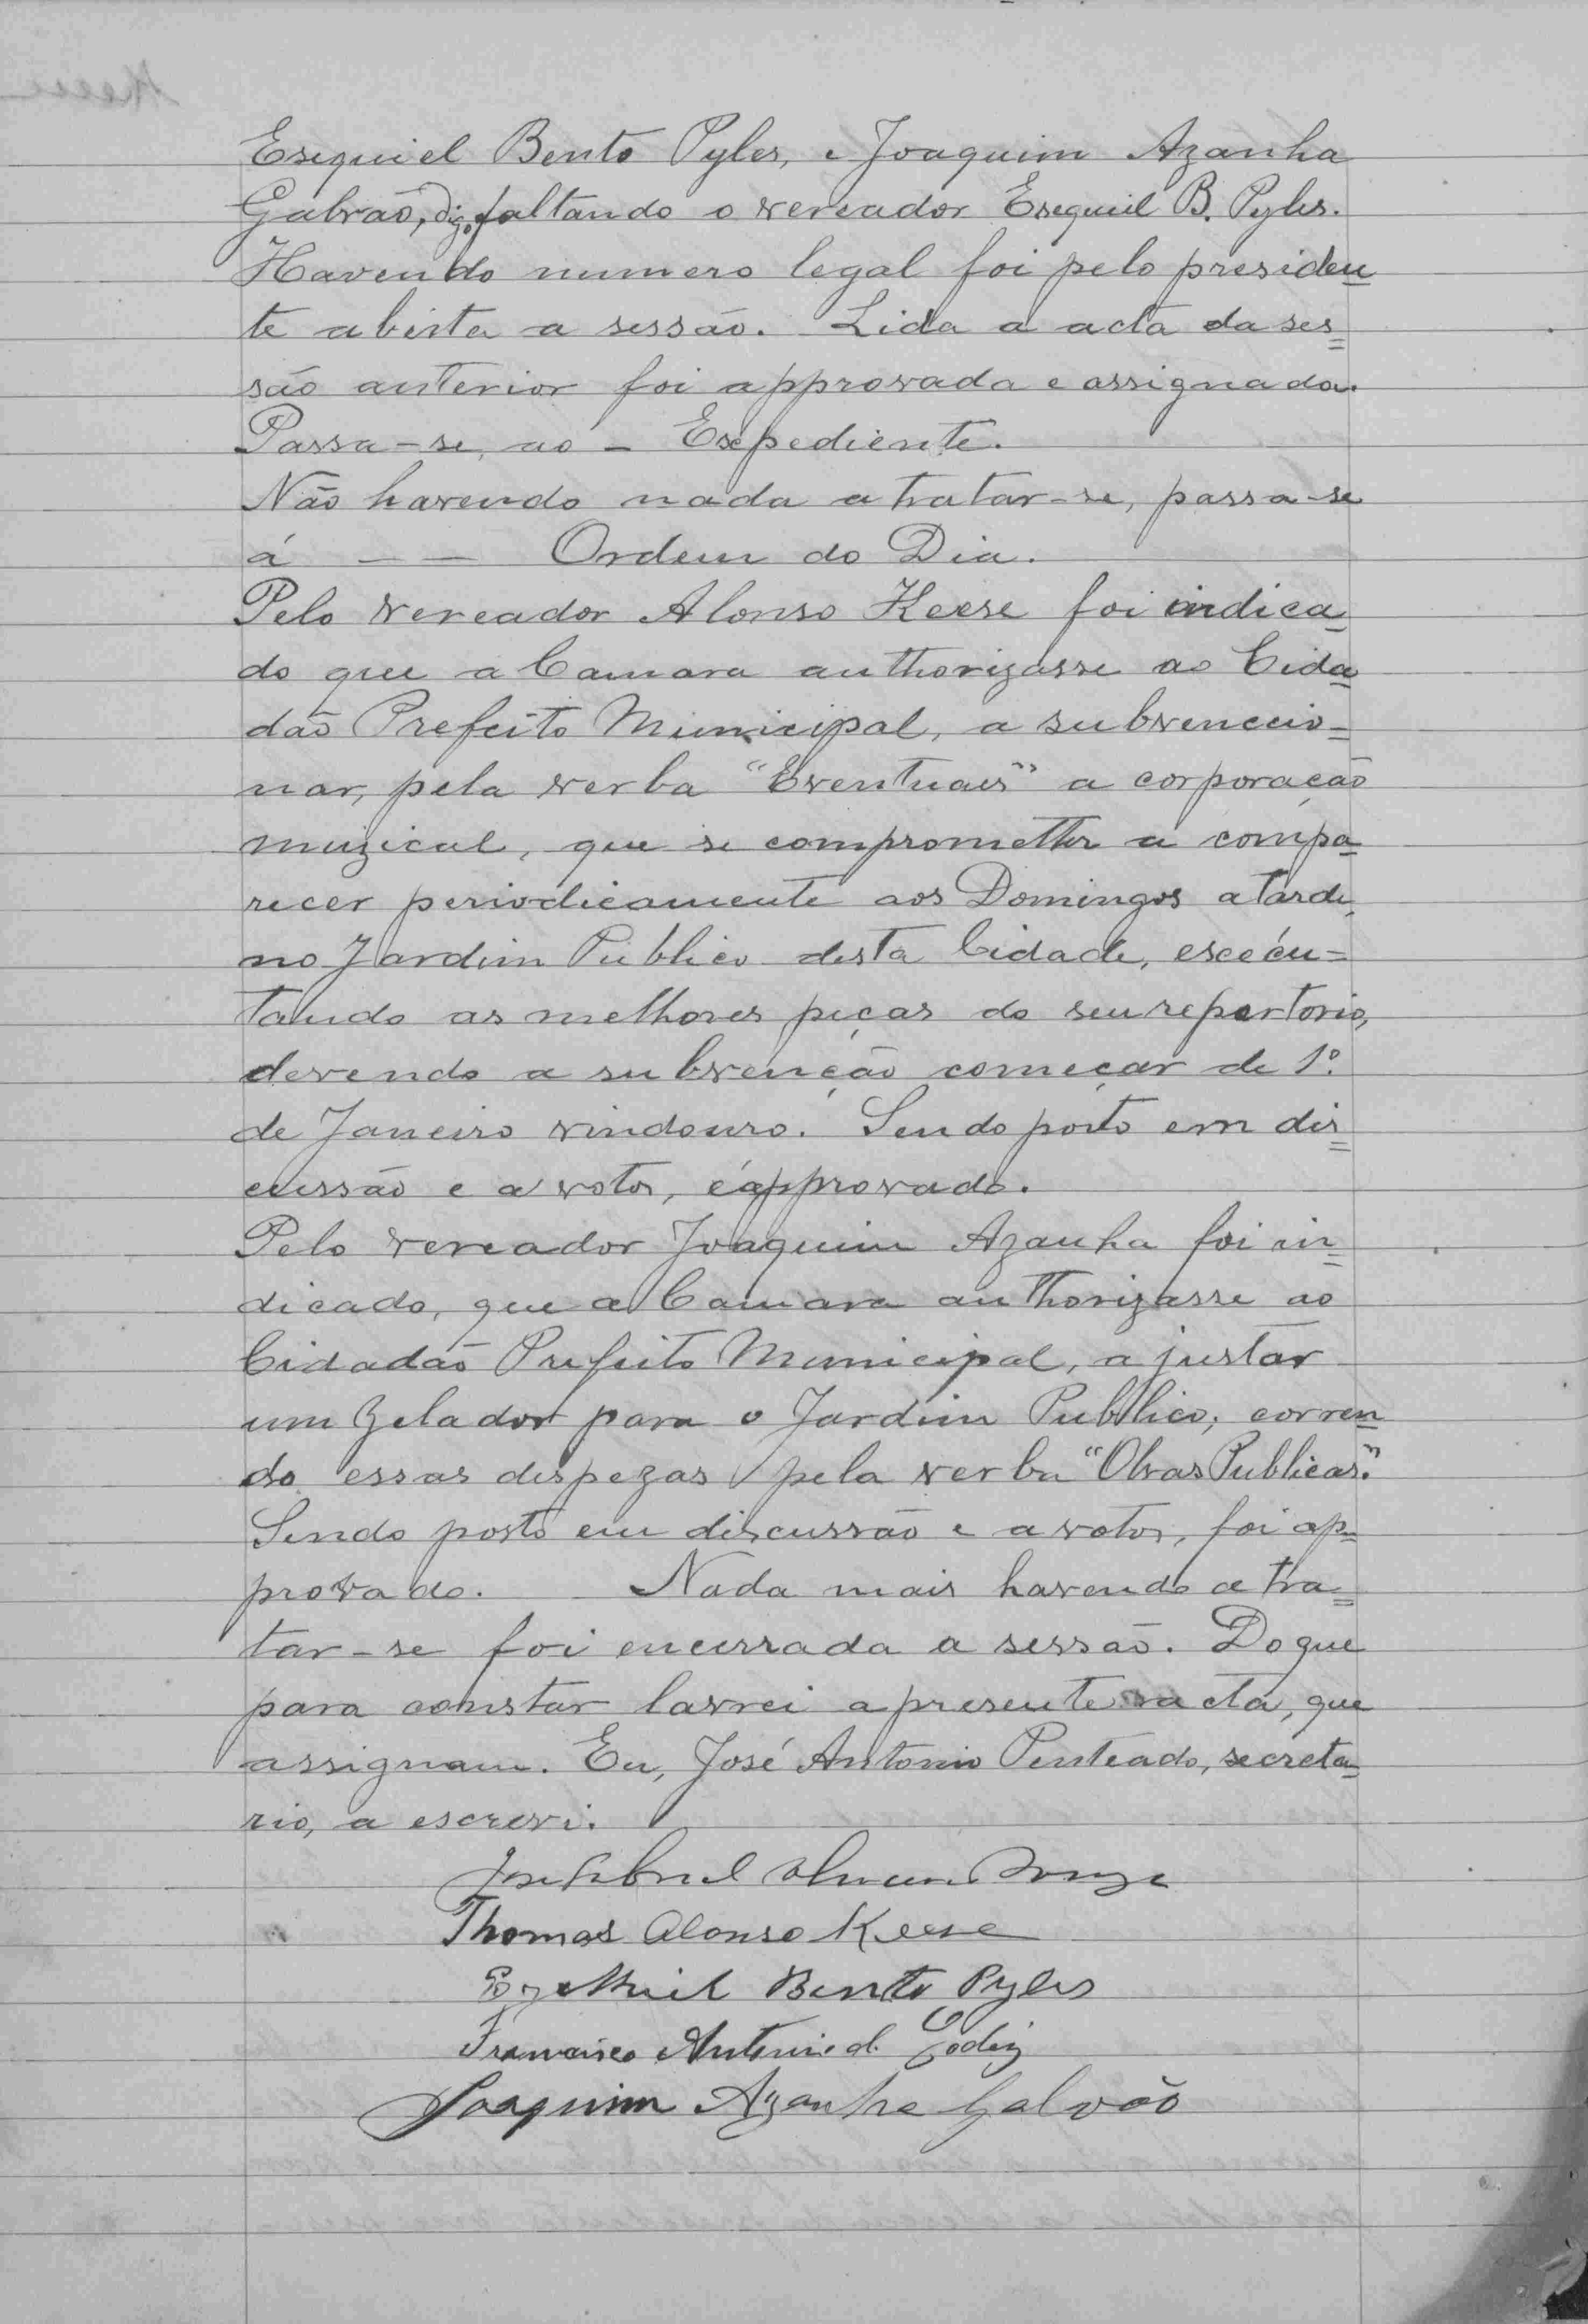 Esequiel Bento Pyles, e Joaquim Azanha
Galvão, digo, faltando o vereador Esequiel B. Pyles.
Havendo numero legal foi pelo presiden
te aberta a sessão. Lida a acta da ses
são anterior foi approvada e assignada.
Passa-se ao - Expediente.
Não havendo nada a tratar-se, passa-se
á — — Ordem do Dia.
Pelo vereador Alonso Keese foi indica
do que a Camara authorizasse ao Cida
dão Prefeito Municipal, a subvencio=
nar, pela verba "Eventuaes" a corporação
muzical, que se comprometter a compa
recer periodicamente aos Domingos a tarde,
no Jardim Publico desta Cidade, execu=
tando as melhores peças do seu repertorio,
devendo a subvenção começar de 1º
de Janeiro vindouro. Sendo posto em dis
cussão e a votos, é approvado.
Pelo vereador Joaquim Azanha foi in
dicado, que a Camara authorizasse ao
Cidadão Prefeito Municipal, a justar
um Zelador para o Jardim Publico, corren
do essas despezas pela verba "Obras Publicas."
Sendo posto em discussão e a votos, foi ap=
provado. Nada mais havendo a tra=
tar-se foi encerrada a sessão. Do que
para constar lavrei a presente acta, que
assignam. Eu, José Antonio Penteado, secreta
rio, a escrevi.
José Gabriel
Thomas Alonso Keese
Ezekiel Bento Pyles
Francisco Antonio d. Godoy
Joaquim Azanha Galvão